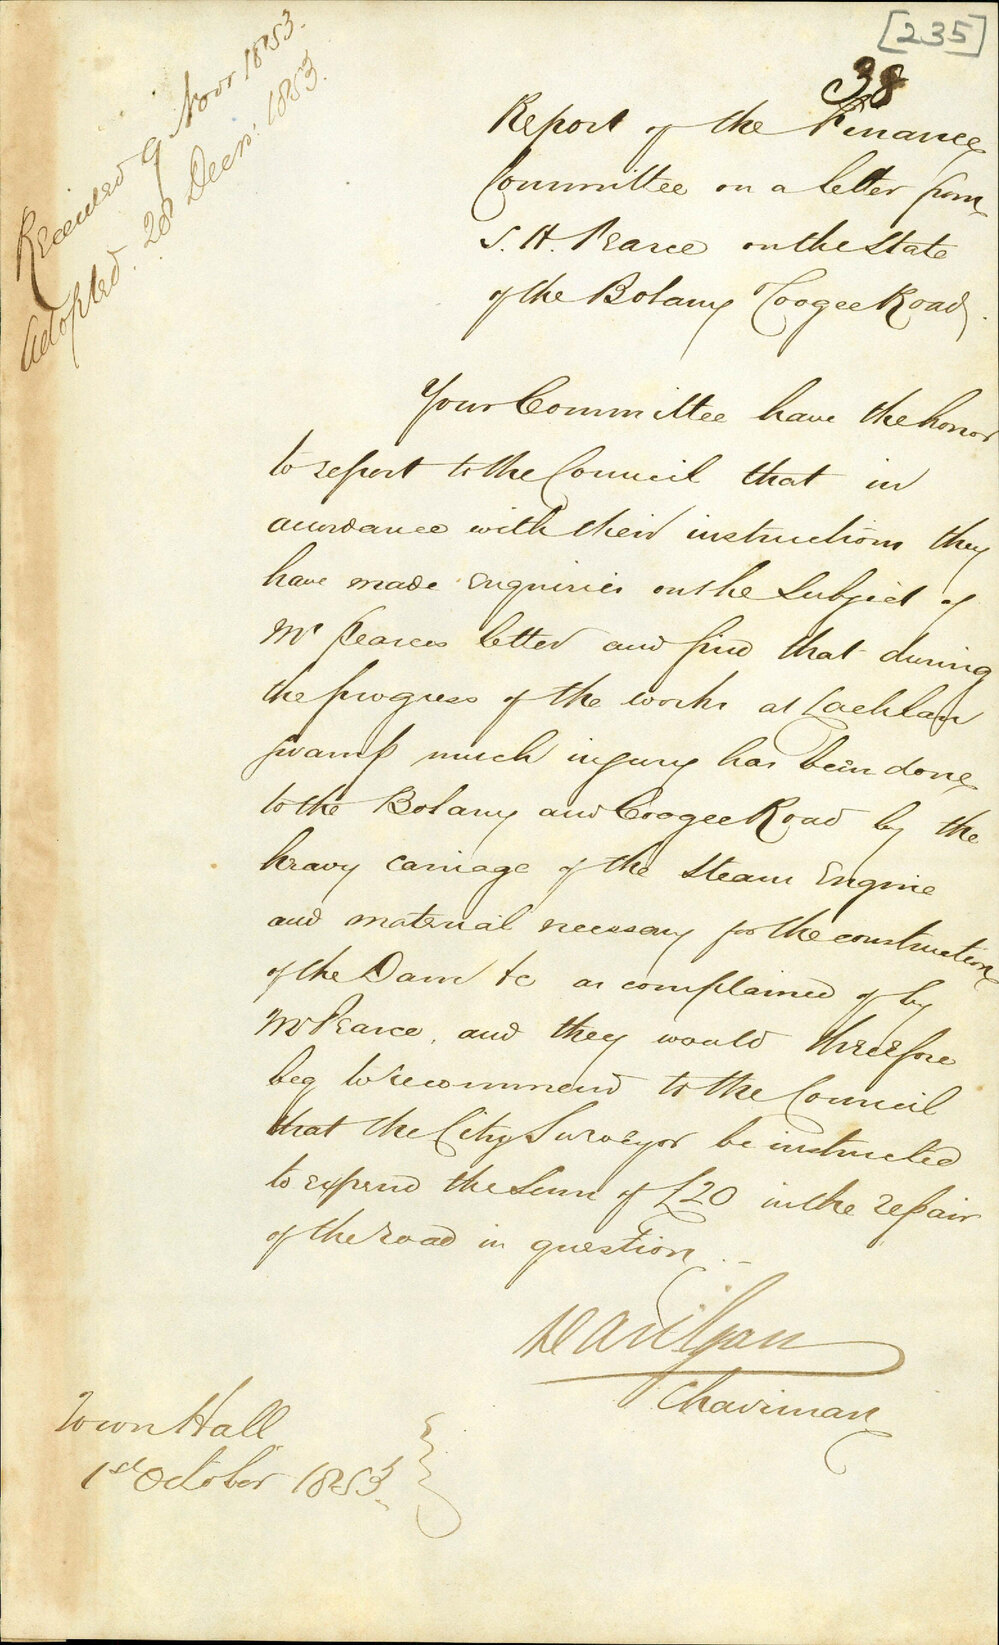 [235]
38
Received 9 Novr 1853.
Adopted. 28 Decr: 1853.
Report of the Finance
Committee on a letter from
S. H. Pearce on the State
of the Botany Coogee Road.
Your Committee have the honor
to report to the Council that in
accordance with their instructions they
have made enquiries on the Subject of
Mr Pearces letter and find that during
the progress of the works at Lachlan
Swamp much injury has been done
to the Botany and Coogee Road by the
heavy carriage of the Steam Engine
and material necessary for the construction
of the Dam &c as complained of by
Mr Pearce, and they would therefore
beg to recommend to the Council
that the City Surveyor be instructed
to expend the Sum of £20 in the repair
of the road in question
Chairman
Town Hall
1st October 1853.